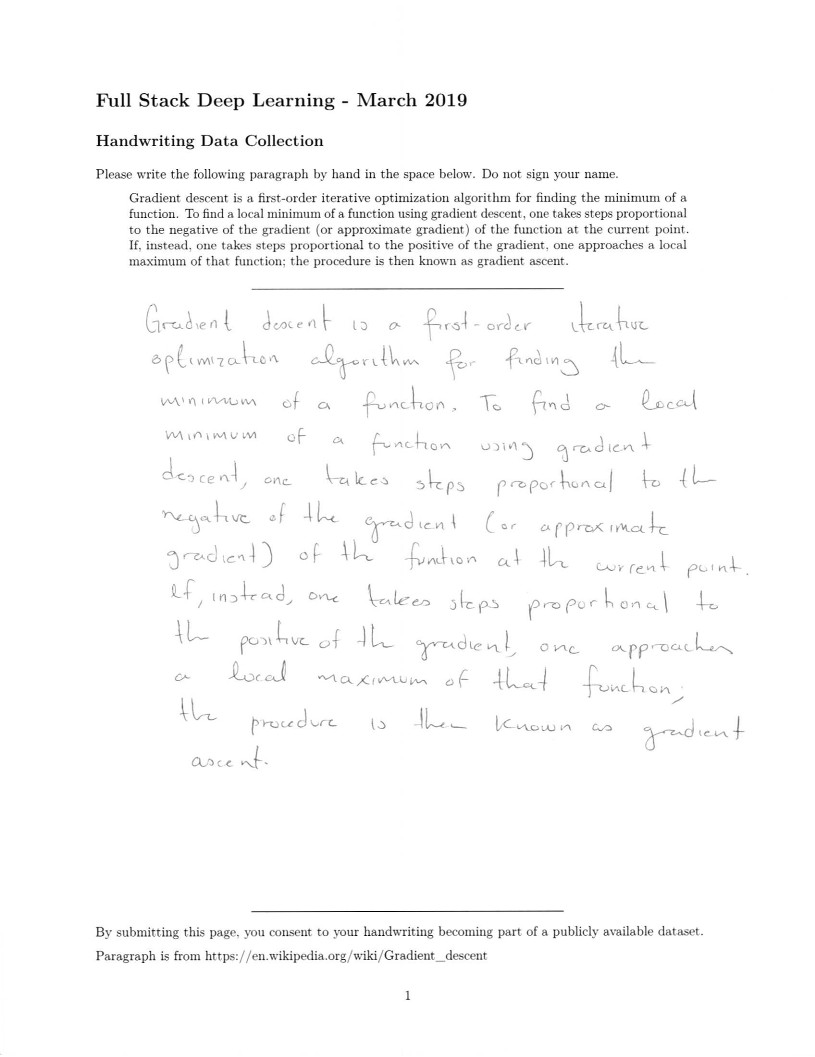 Full Stack Deep Learning - March 2019
Handwriting Data Collection
Please write the following paragraph by hand in the space below. Do not sign your name.
Gradient descent is a first-order iterative optimization algorithm for finding the minimum of a
function. To find a local minimum of a function using gradient descent, one takes steps proportional
to the negative of the gradient (or approximate gradient) of the function at the current point.
If, instead, one takes steps proportional to the positive of the gradient, one approaches a local
maximum of that function; the procedure is then known as gradient ascent.
Gradient descent is a first-order iterative
optimization algorithm for finding the
minimum of a function. To find a local
minimum of a function using gradient
descent, one takes steps proportional to the
negative of the gradient (or approximate
gradient) of the funtion at the current point.
If, instead, one takes steps proportional to
the positive of the gradient, one approaches
a local maximum of that function;
the procedure is then known as gradient
ascent.
By submitting this page, you consent to your handwriting becoming part of a publicly available dataset.
Paragraph is from https://en.wikipedia.org/wiki/Gradient_descent
1